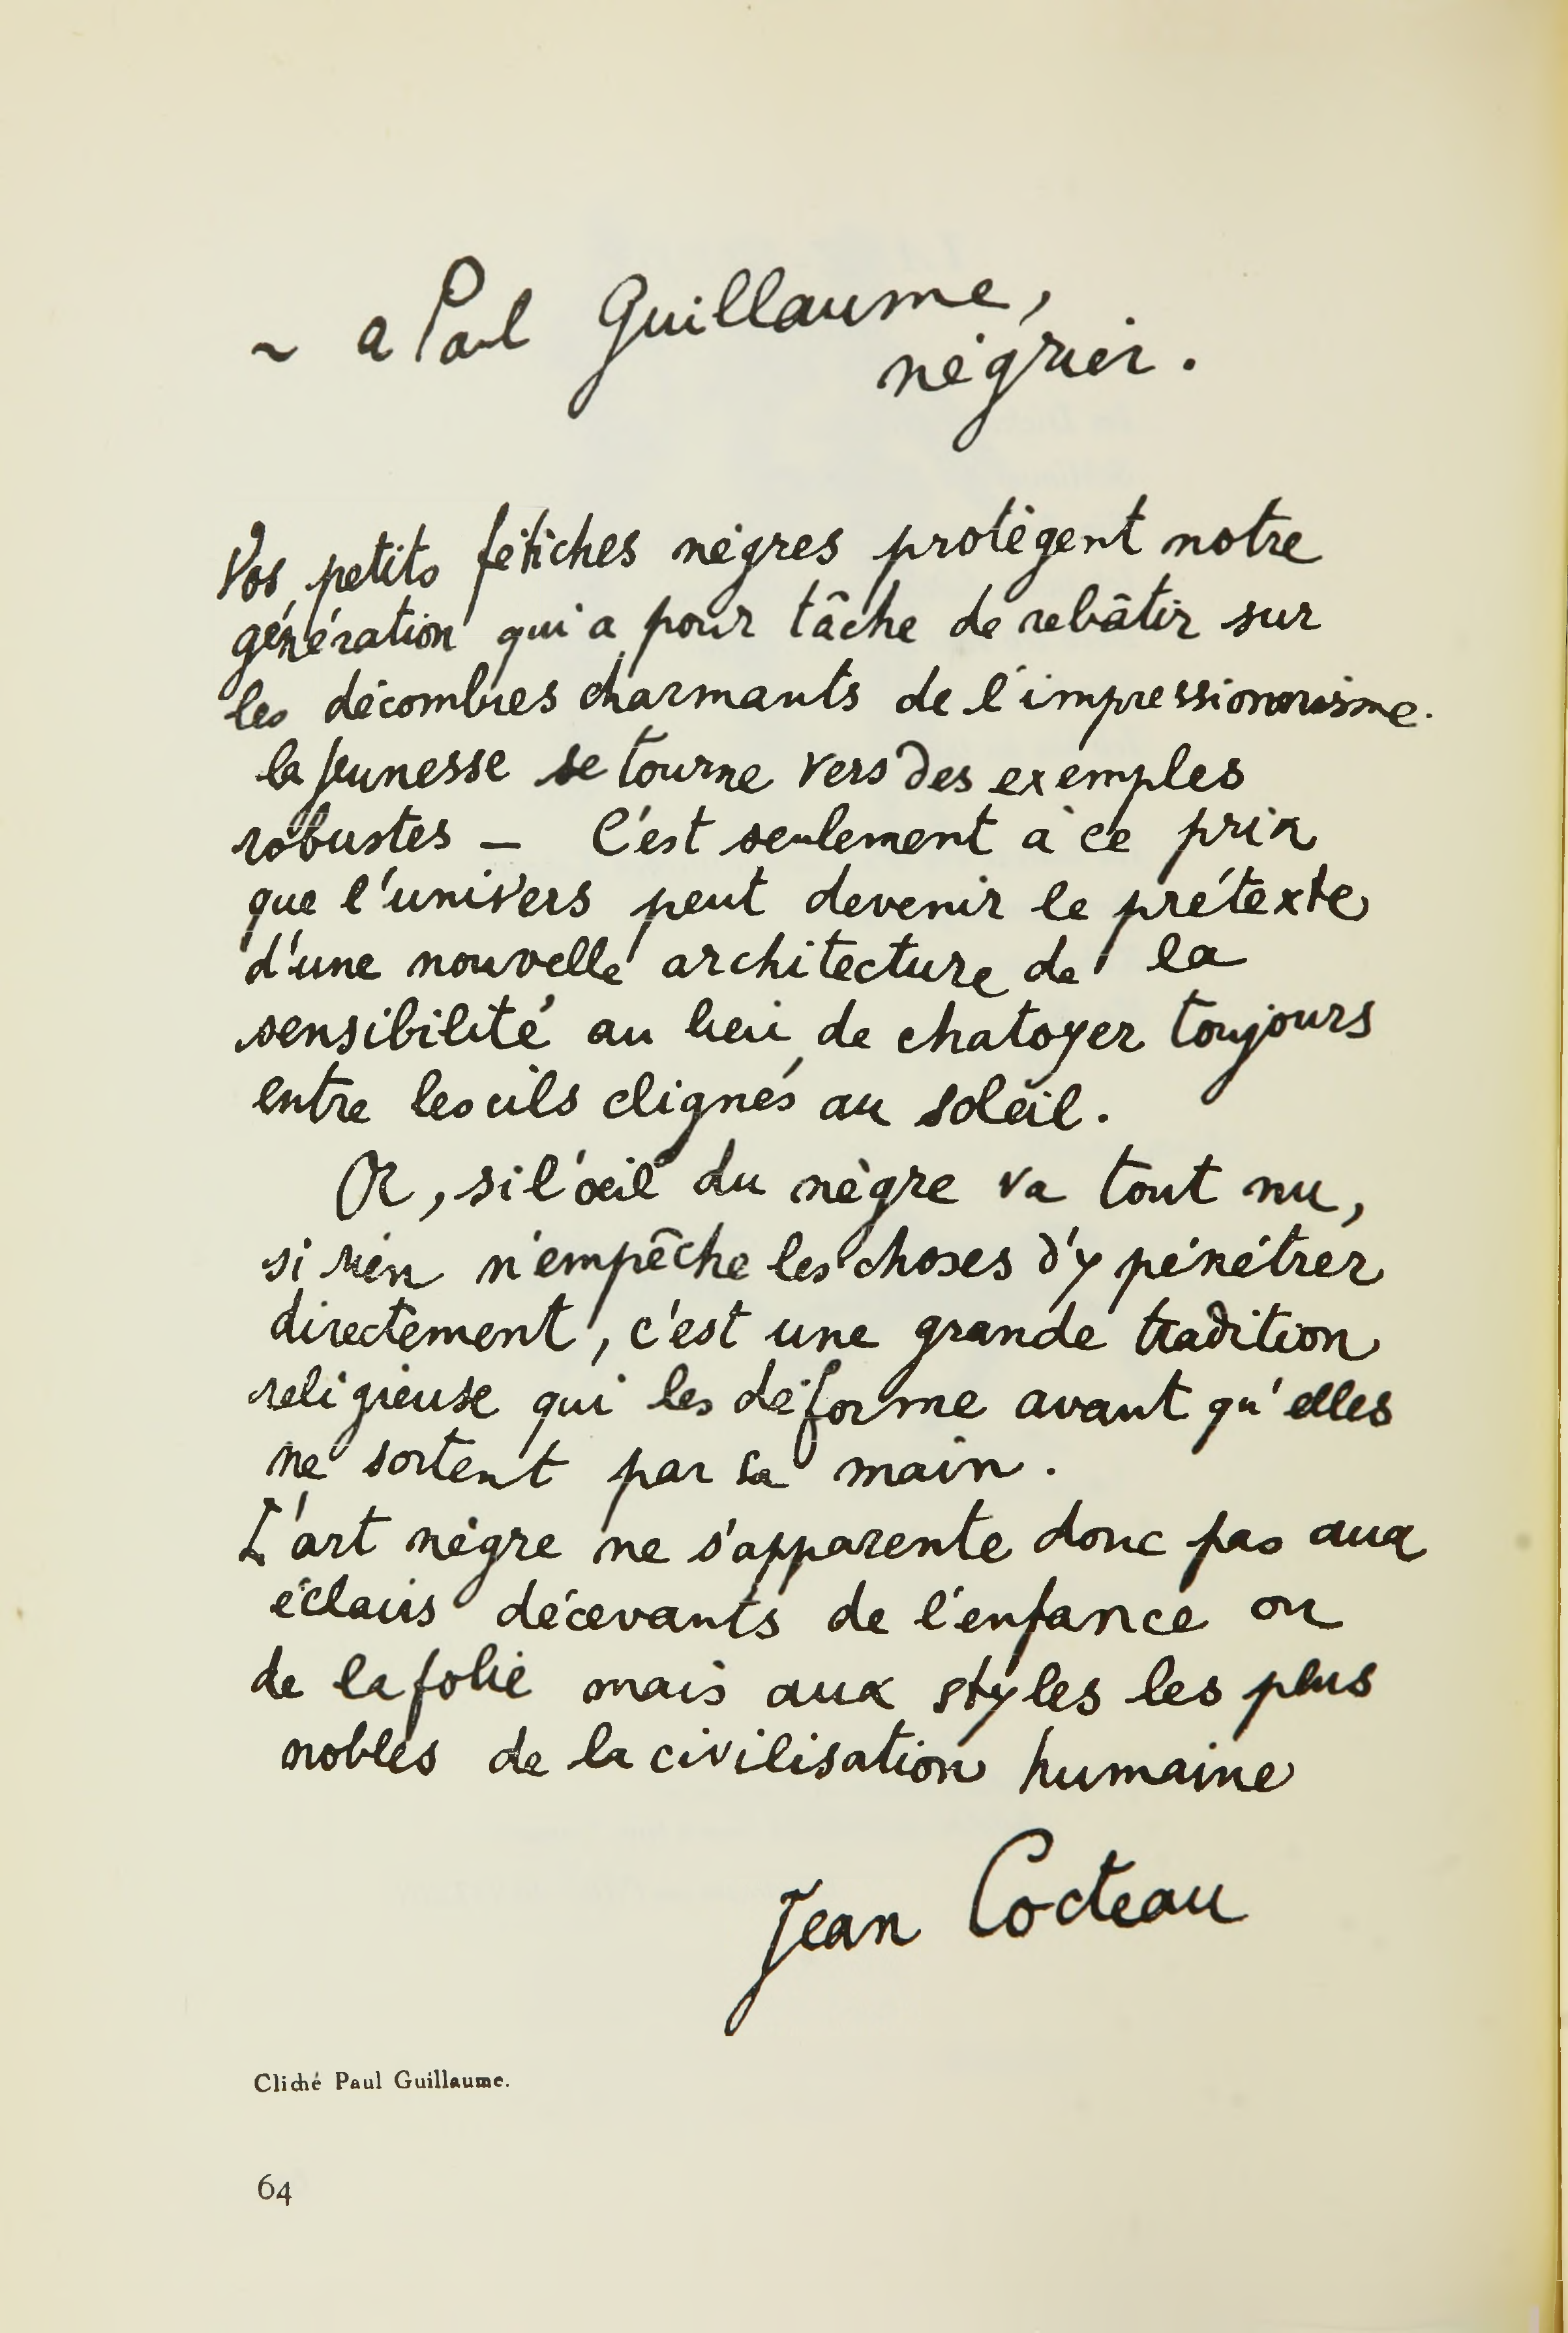 ~ a Paul Guillaume,
négrier.
Vos petits fétiches nègres protègent notre
génération qui a pour tâche de rebâtir sur
les décombres charmants de l'impressionnisme.
la jeunesse se tourne vers des exemples
robustes — C'est seulement à ce prix
que l'univers peut devenir le prétexte
d'une nouvelle architecture de la
sensibilité au lieu de chatoyer toujours
entre les cils clignés au soleil.
Or, si l'œil du nègre va tout nu,
si rien n'empêche les choses d'y pénétrer
directement, c'est une grande tradition
religieuse qui les déforme avant qu'elles
ne sortent par sa main.
L'art nègre ne s'apparente donc pas aux
éclairs décevants de l'enfance ou
de la folie mais aux styles les plus
nobles de la civilisation humaine
Jean Cocteau
Cliché Paul Guillaume.
64